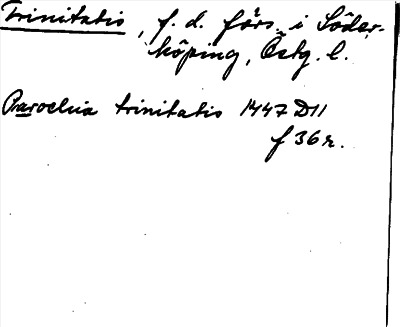 Trinitatis, f. d. förs. i Söder-
köping, Östg. l.
Parochia trinitatis 1447 D11
f 36 r.